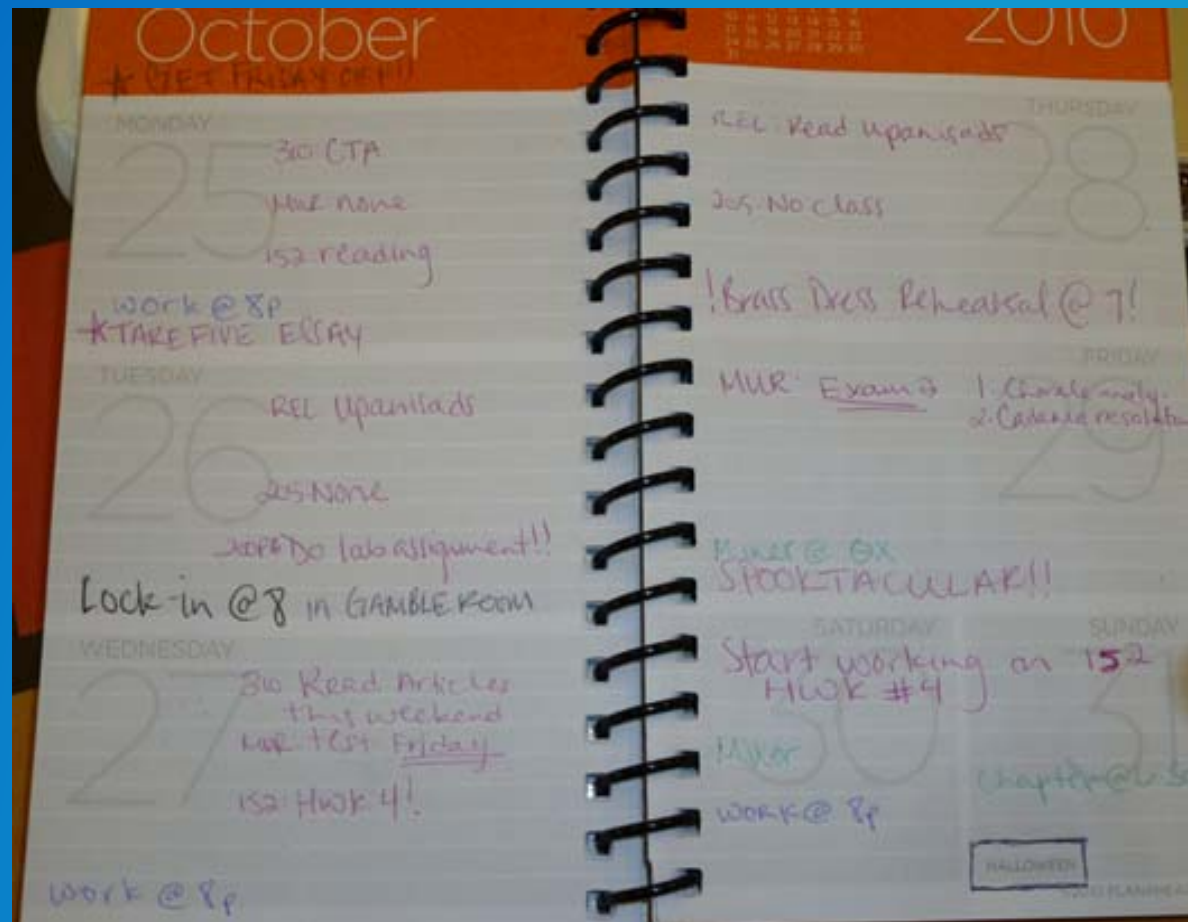 October
2010
* GET FRIDAY OFF!!
MONDAY
25
310 CTA
MUR none
152 reading
work @ 8p
*TAKE FIVE ESSAY
TUESDAY
26
REL Upanisads
205 None
Do lab assignment!!
Lock-in @ 8 IN GAMBLE ROOM
WEDNESDAY
27
310 Read Articles
this weekend
MUR test Friday
152 HWK 4!
work @ 8p
THURSDAY
28
REL: Read Upanisads
205 No class
!Brass Dress Rehearsal @ 7!
FRIDAY
29
MUR: Exam → 1. Chorale
2. Cadence
Mixer @
SPOOKTACULAR!!
SATURDAY
SUNDAY
30
31
Start working on 152
HWK #4
Mixer
Chapter @
WORK @ 8p
HALLOWEEN